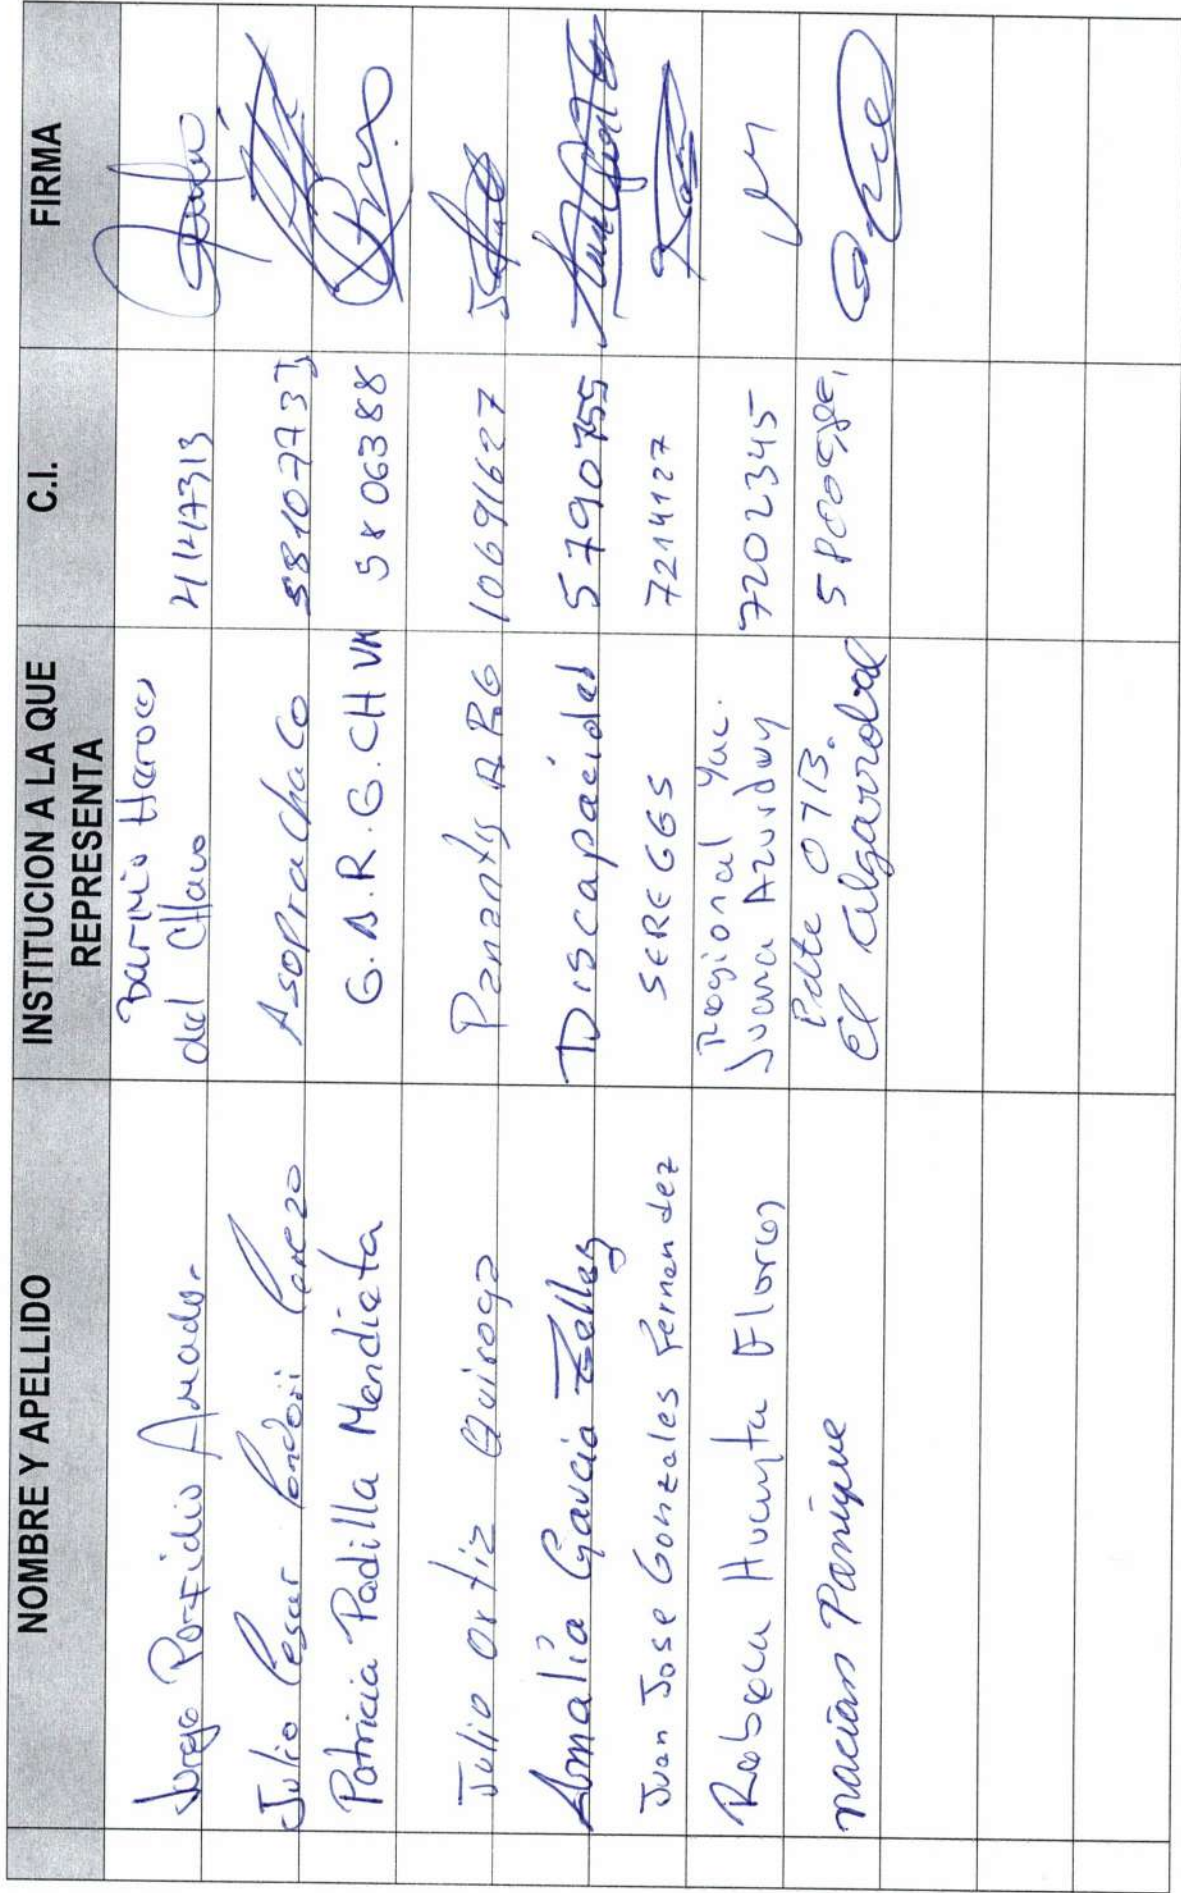 NOMBRE Y APELLIDO INSTITUCION A LA QUE REPRESENTA C.I. FIRMA
Jorge Porfidio Amador. Barrio Heroes del Chaco 4147313
Julio Cesar Condori Cerezo Asoprachaco
Patricia Padilla Mendieta G.A.R.G.CH VM 5806388
Julio Ortiz Quiroga ARG 1069627
Amalia Garcia Tellez Discapacidad 5790755
Juan Jose Gonzales Fernandez SEREGES 7214127
Rebeca Huayta Flores Regional Yac. Juana Azurduy 7202345
Panique Pdte OTB. El Algarrobal